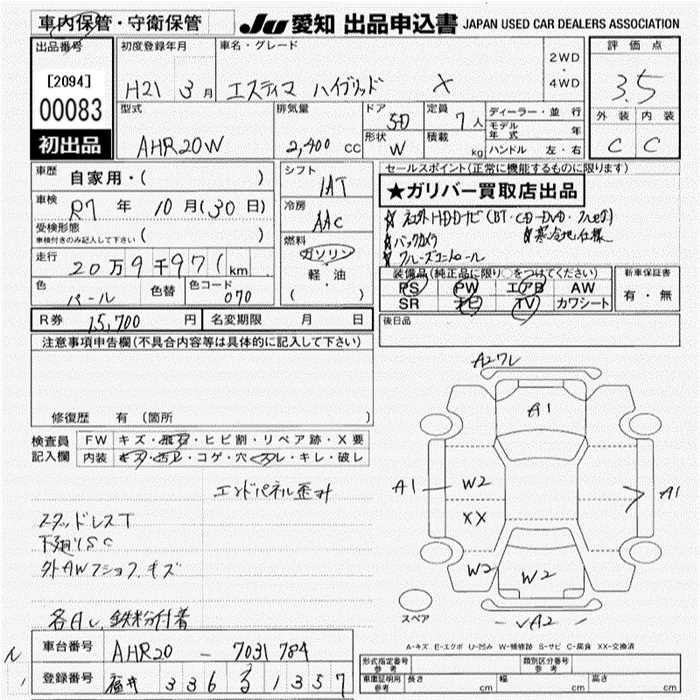 車内保管・守衛保管
JU 愛知 出品申込書 JAPAN USED CAR DEALERS ASSOCIATION
出品番号
[2094]
00083
初出品
初度登録年月
H21 3月
車名・グレード
エスティマ ハイブリッド X
2WD
・
4WD
評価点
3.5
外装 内装
C C
型式
AHR20W
排気量
2,400 cc
ドア
5D
形状
W
定員
7人
積載
kg
ディーラー・並行
モデル年式 年
ハンドル 左・右
車歴
自家用・( )
車検
R7年 10月(30日)
受検形態
車検付きのみ記入して下さい ( )
走行
20万9千971km
色
パール
色替
色コード
070
シフト
IAT
冷房
AAC
燃料
ガソリン
軽・油
( )
セールスポイント(正常に機能するものに限ります)
★ガリバー買取店出品
☆社外HDDナビ(BT・CD・DVD・フルセグ)
☆バックカメラ ☆寒冷地仕様
☆クルーズコントロール
装備品(純正品に限り○をつけてください)
PS PW エアB AW
SR ナビ TV カワシート
新車保証書
有・無
後日品
R券 15,700円
名変期限 月 日
注意事項申告欄(不具合内容等は具体的に記入して下さい)
修復歴 有 (箇所
検査員
記入欄
FW キズ・飛石・ヒビ割・リペア跡・X要
内装 キズ・汚レ・コゲ・穴・スレ・キレ・破レ
エンドパネル歪み
スタッドレスT
下廻りSC
外AWマシュフ、キズ
各AU、鉄粉付着
車台番号 AHR20-7031784
登録番号 福井 336 る 1357
A2ワレ
A1
A1
W2
XX
W2
W2
A1
A2
スペア
A-キズ E-エクボ U-凹み W-補修跡 S-サビ C-腐食 XX-交換済
形式指定番号
参考
類別区分番号
参考
車庫証明用
参考
長さ cm
幅 cm
高さ cm